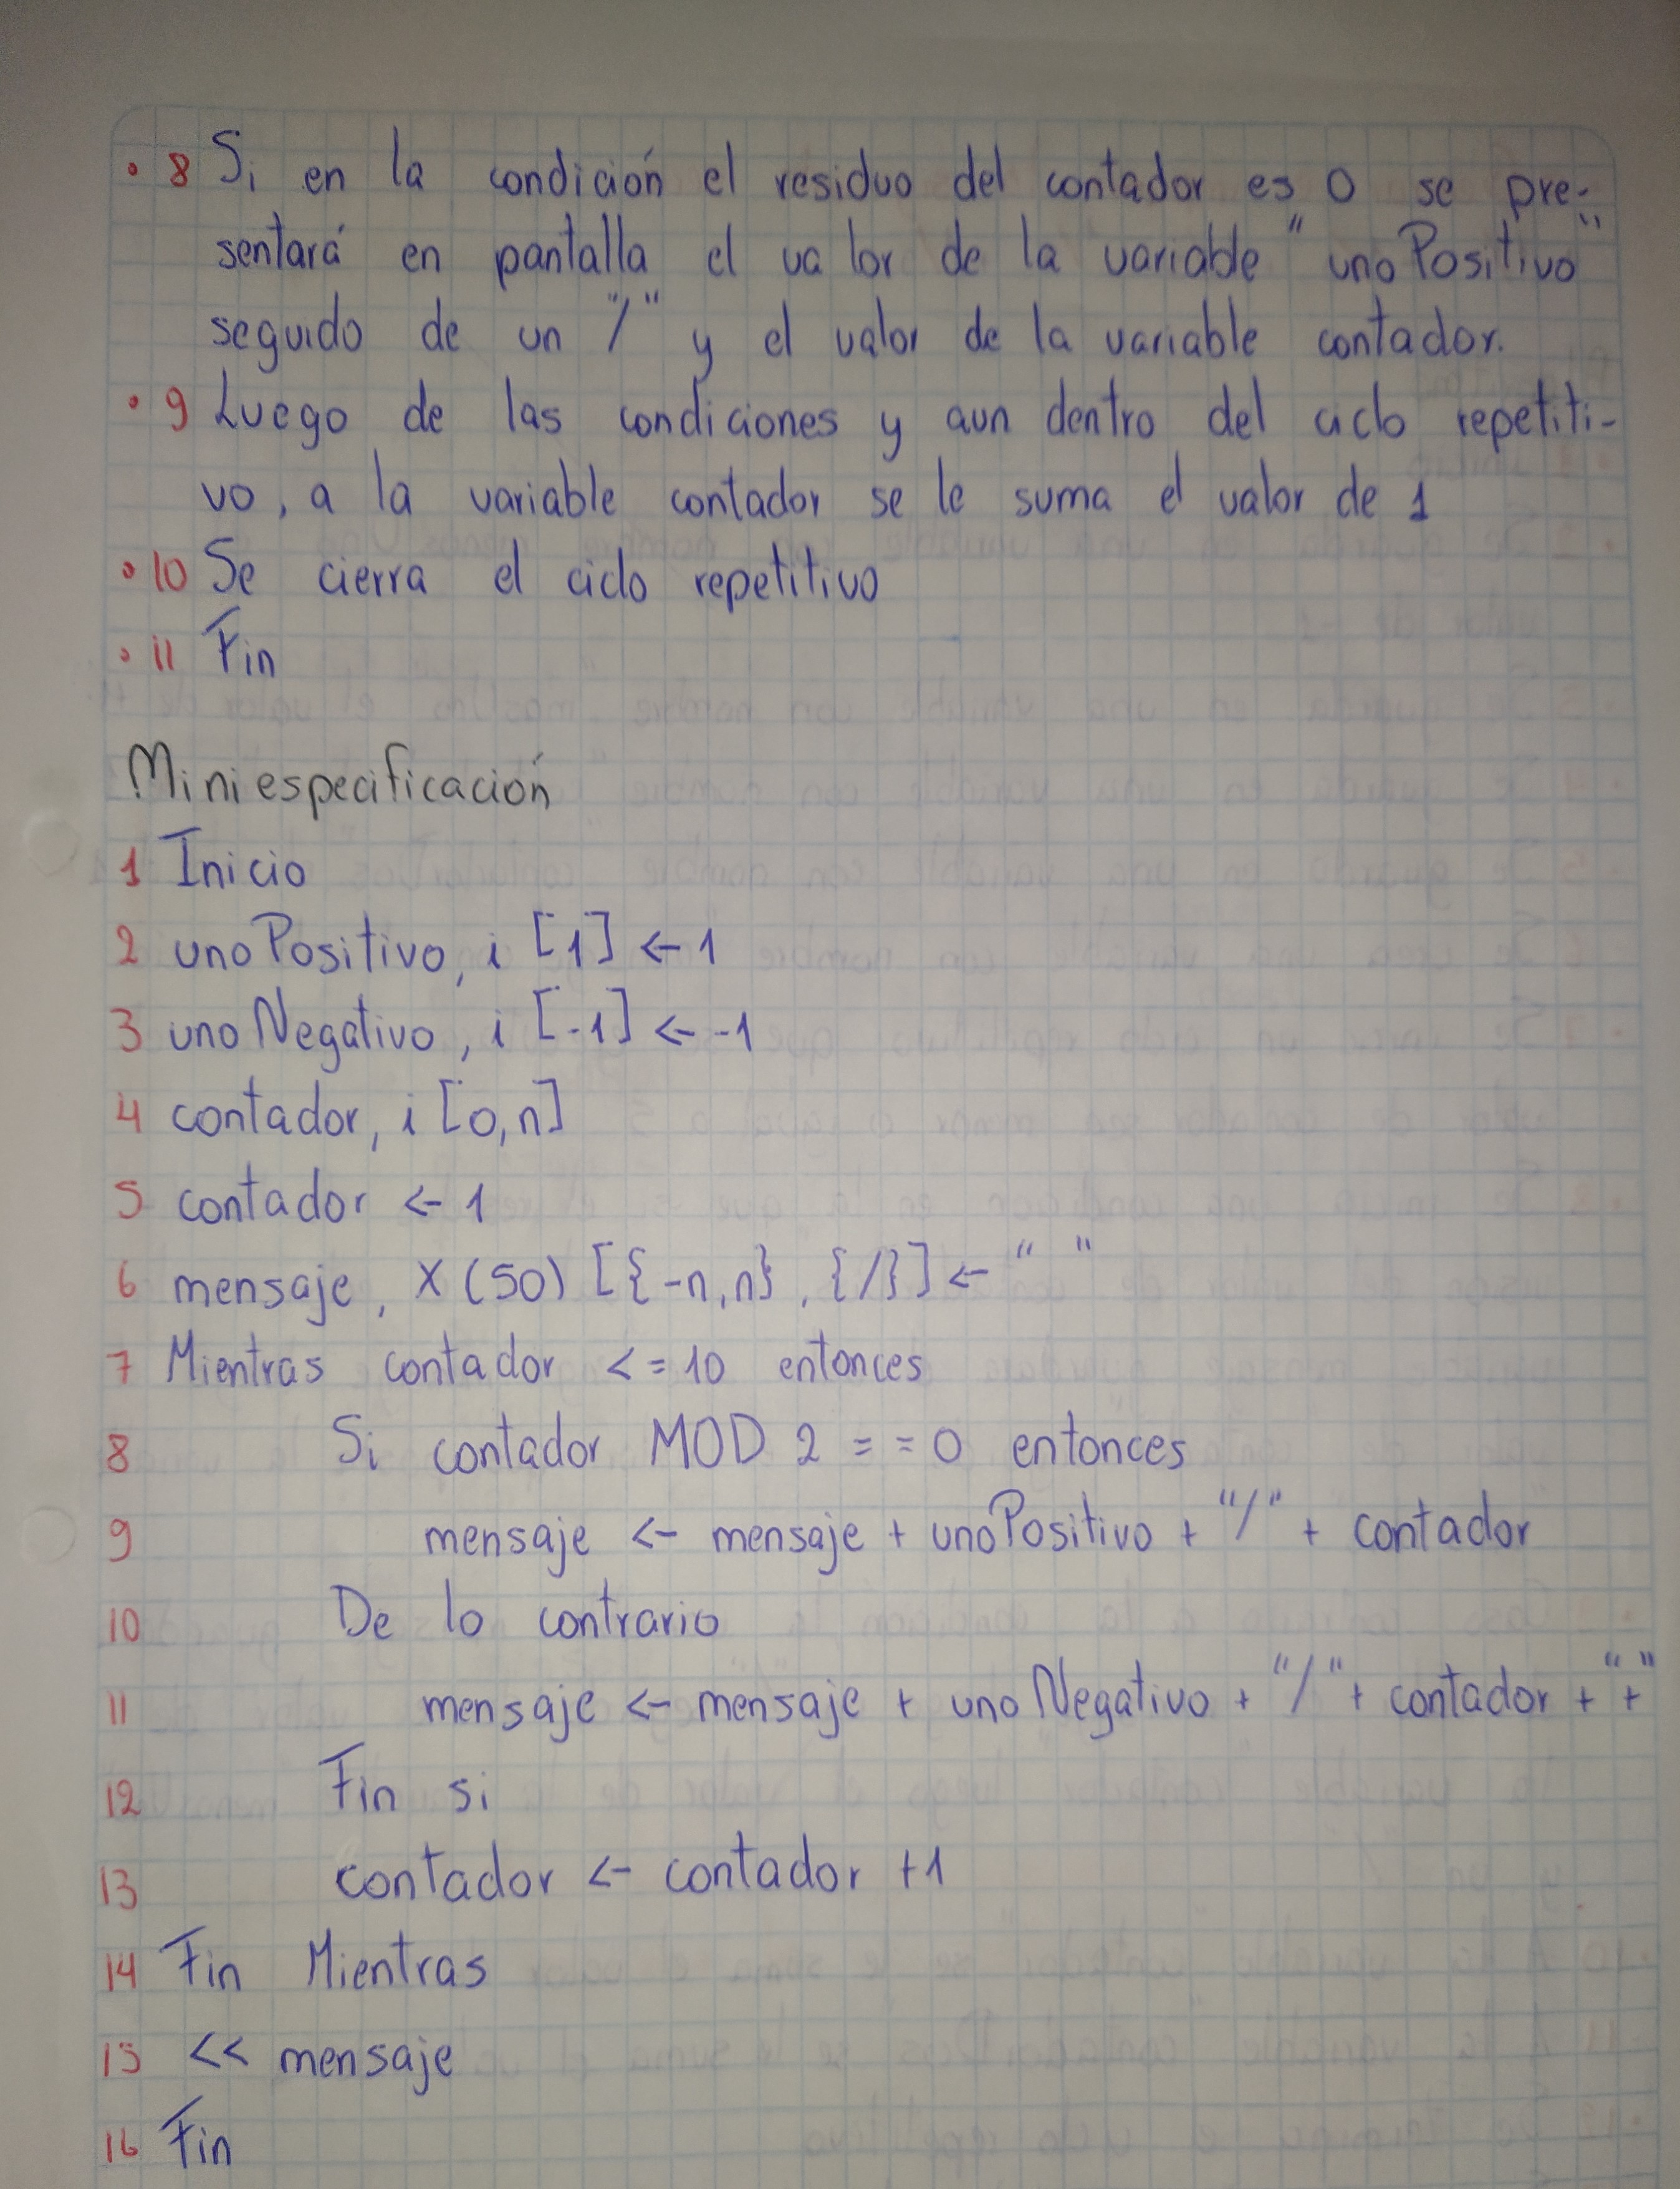 • 8 Si en la condición el residuo del contador es 0 se pre-
sentará en pantalla el valor de la variable "unoPositivo"
seguido de un "/" y el valor de la variable contador.
• 9 Luego de las condiciones y aun dentro del ciclo repetiti-
vo, a la variable contador se le suma el valor de 1
• 10 Se cierra el ciclo repetitivo
• 11 Fin
Miniespecificación
1 Inicio
2 unoPositivo, i [1] <- 1
3 unoNegativo, i [-1] <- -1
4 contador, i [0,n]
5 contador <- 1
6 mensaje, X (50) [{-n,n}, {/}] <- " "
7 Mientras contador <= 10 entonces
8 Si contador MOD 2 == 0 entonces
9 mensaje <- mensaje + unoPositivo + "/" + contador
10 De lo contrario
11 mensaje <- mensaje + unoNegativo + "/" + contador + "+"
12 Fin si
13 contador <- contador +1
14 Fin Mientras
15 << mensaje
16 Fin